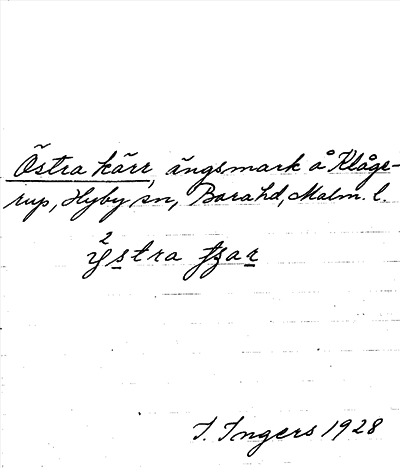 Östra kärr, ängsmark å Klåge-
rup, Hyby sn, Bara hd, Malm. l.
²ystra tʃar
I. Ingers 1928